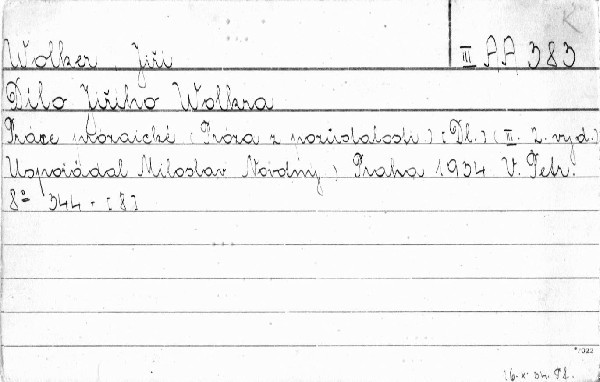 K
Wolker Jiří III AA 383
Dílo Jiřího Wolkra
Práce prozaické (Próza z pozůstalosti) [Dl.] (III. 2. vyd.)
Uspořádal Miloslav Novotný; Praha 1934 V. Petr.
8° 344 - [8]
*7022
16. X. 34.